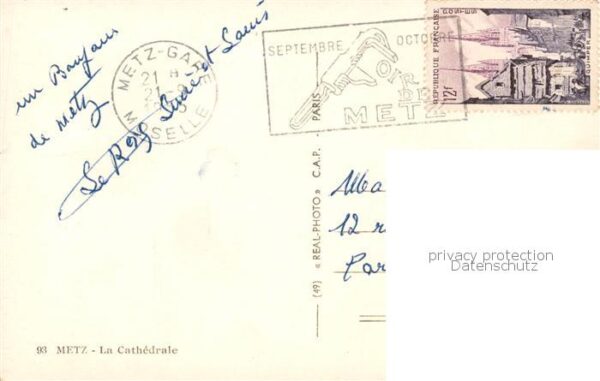 un Bonjour
de Metz
METZ-GARE
21 H
MOSELLE
SEPTEMBRE OCTOBRE
FOIRE
DE
METZ
REPUBLIQUE FRANÇAISE
POSTES
QUIMPER
12F
(49) « REAL-PHOTO » C.A.P. - PARIS
12 r
Par
privacy protection
Datenschutz
93 METZ - La Cathédrale